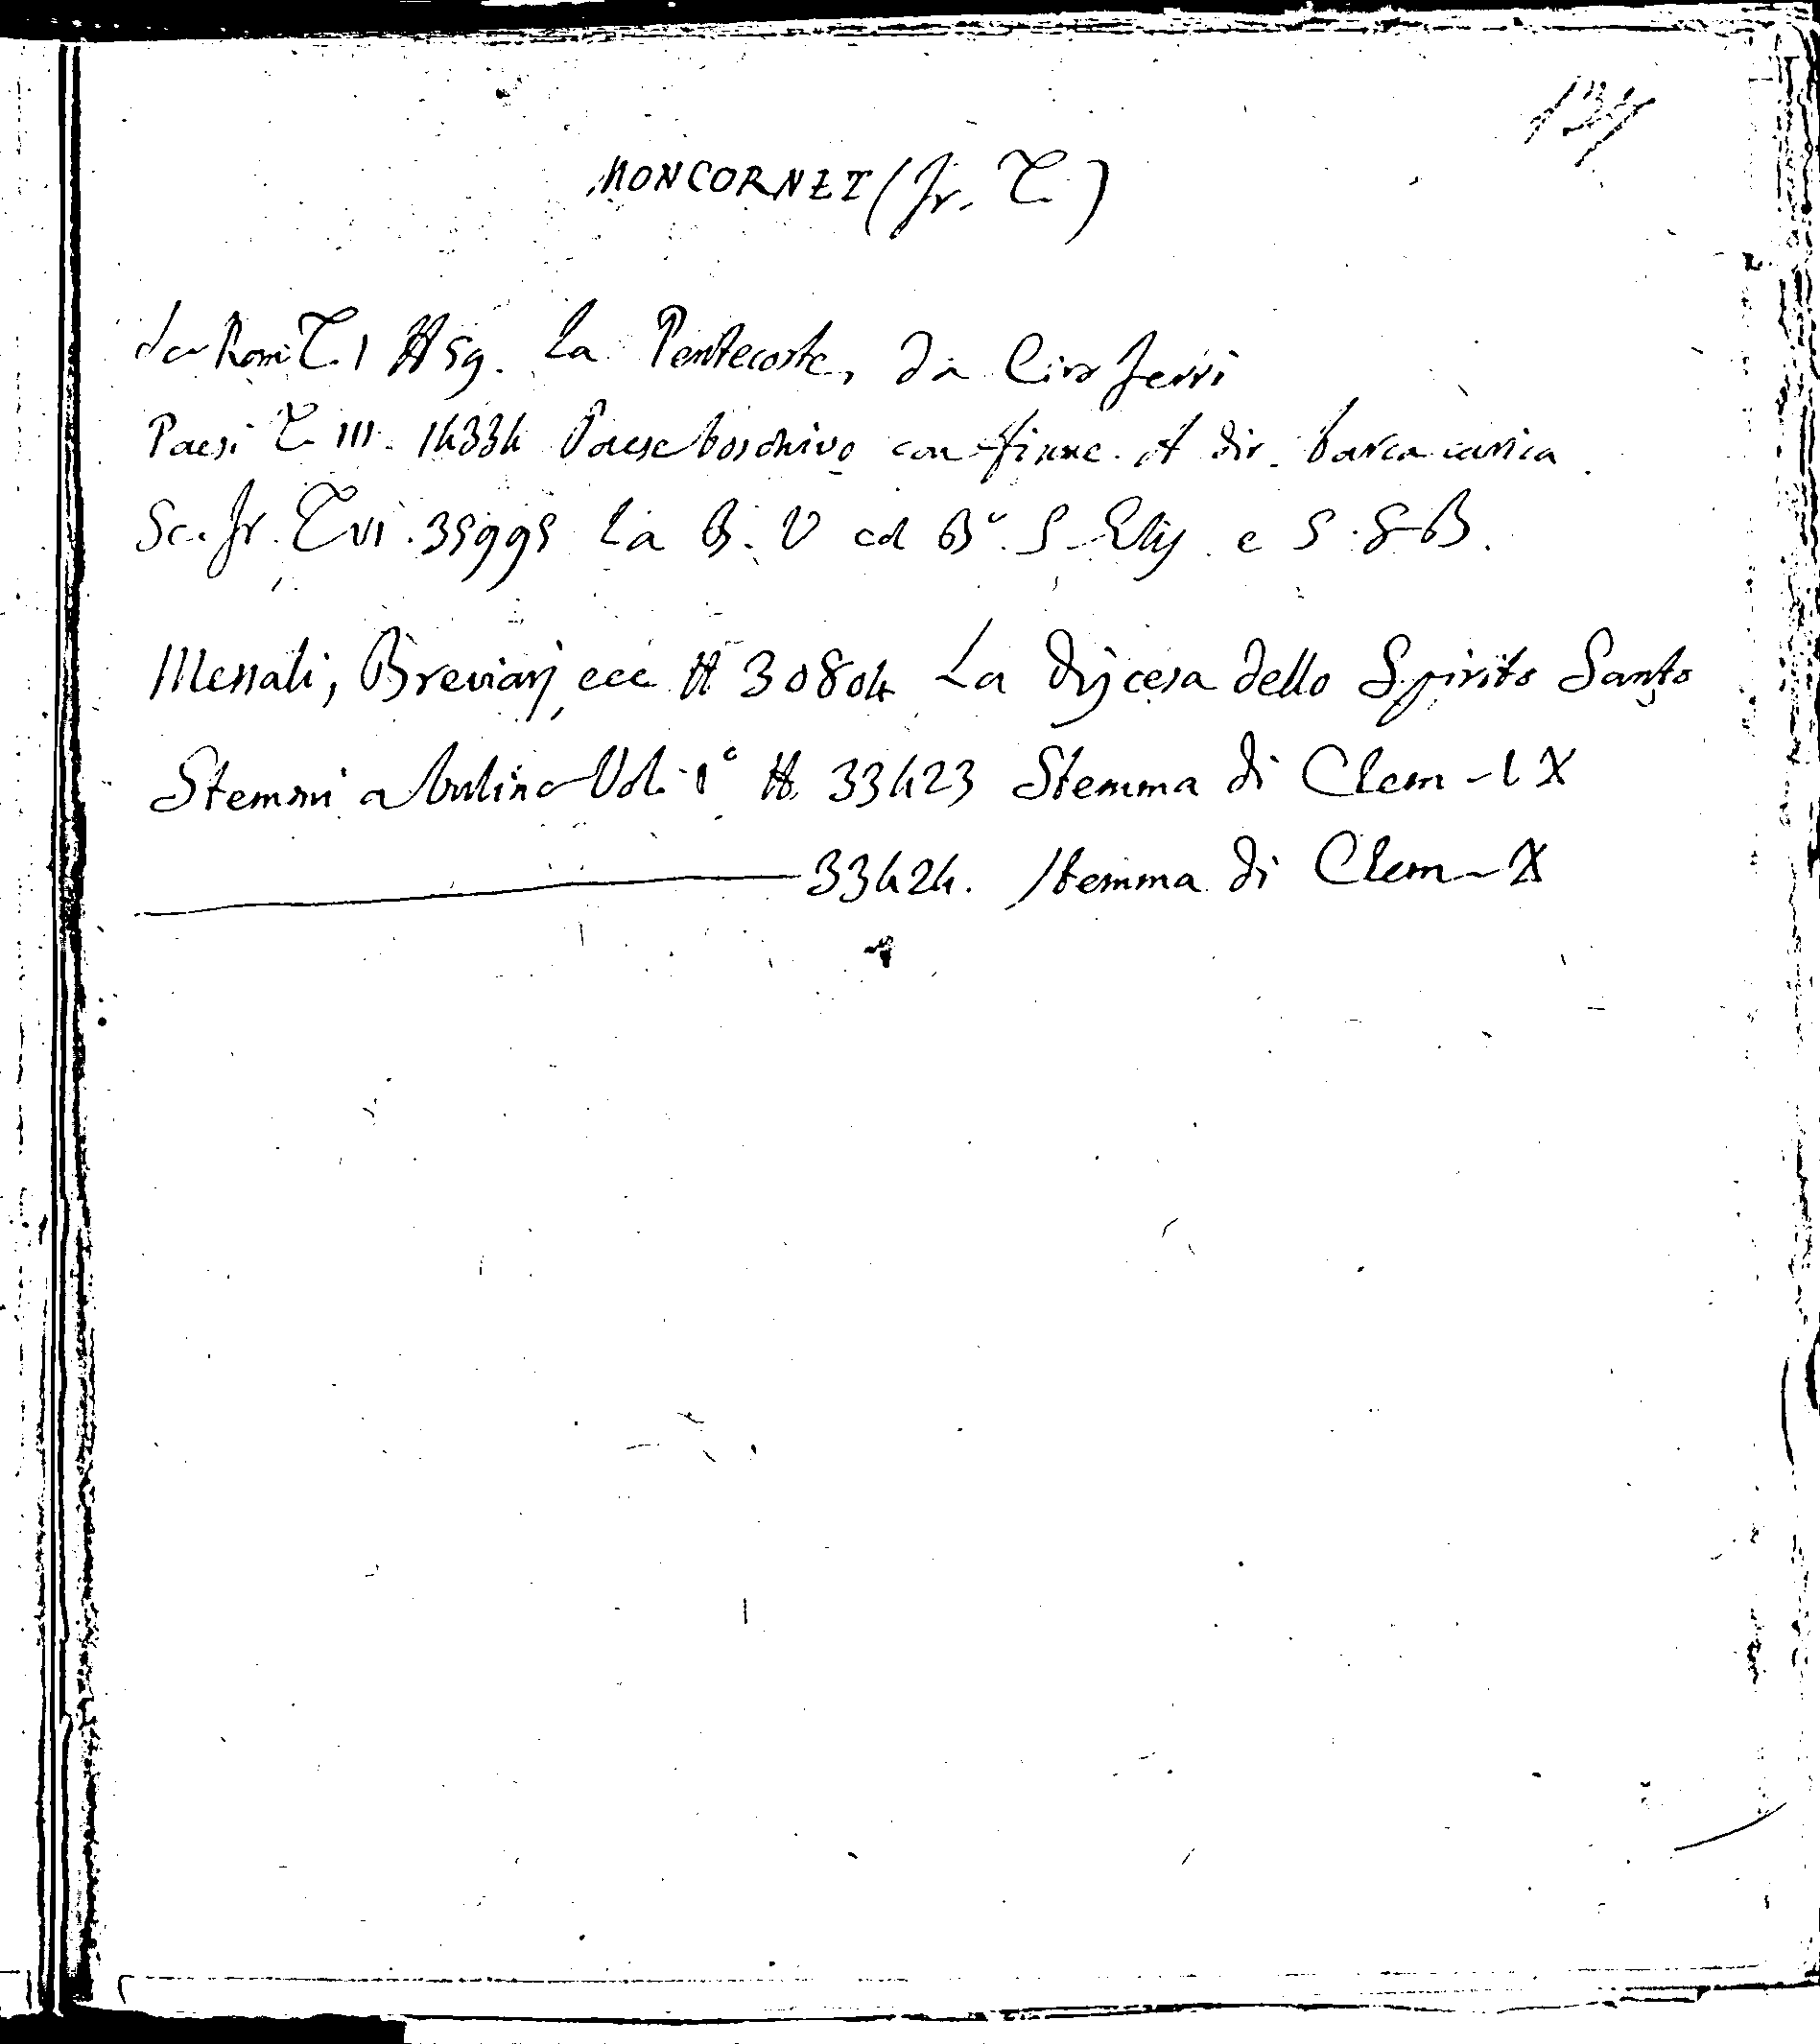 137
MONCORNET (Fr. T.)
da Rom. T. I # 59. La Pentecoste, da Ciro Ferri
Paesi T. III. 14334 Paese boschivo con fiume. A dir. barca carica.
Sc. Fr. T VI. 35995 La B. V col B.º S. Elis. e S. G B.
Messali, Breviarj, ecc # 30804 La Discesa dello Spirito Santo
Stemmi a bulino Vol. 1º # 33423 Stemma di Clem. IX
33424. Stemma di Clem. X